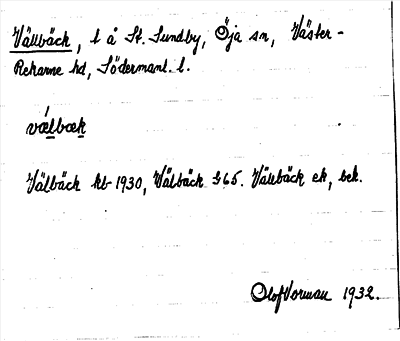 Vällbäck, t å St. Sundby, Öja sn, Väster-
Rekarne hd, Södermanl. l.
vælbæk
Välbäck kb 1930, Välbäck G65. Vällbäck ek, bek.
Olof Vorman 1932.